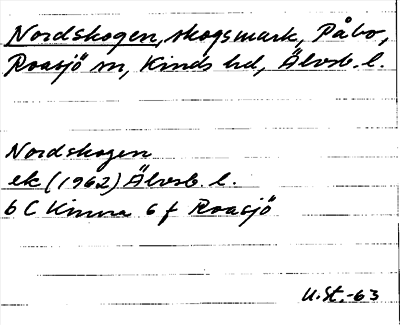 Nordskogen, skogsmark, Påbo,
Roasjö sn, Kinds hd, Älvsb. l.
Nordskogen
ek (1962) Älvsb. l.
6 C Kinna 6 f Roasjö
U.St.-63